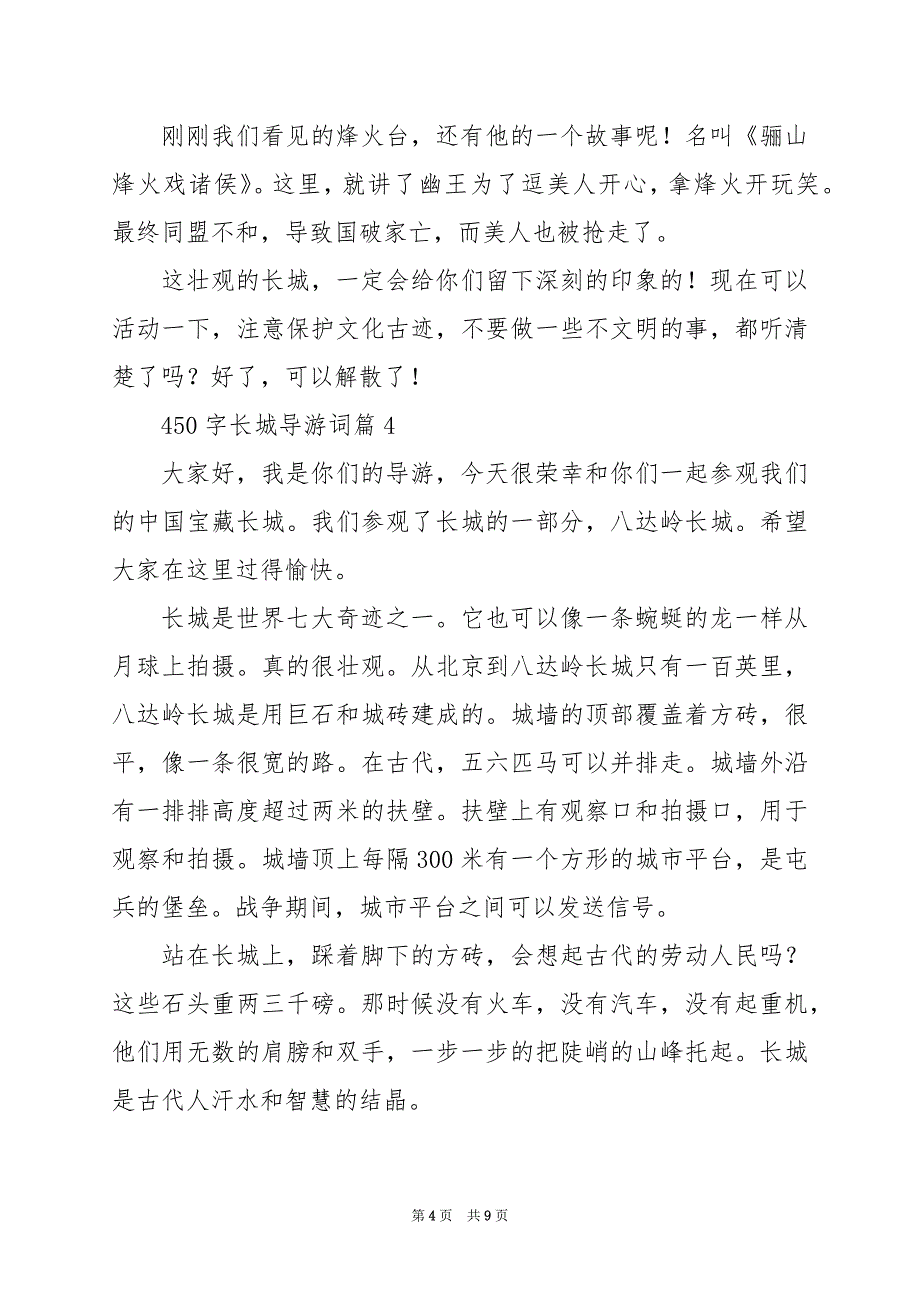 刚刚我们看见的烽火台，还有他的一个故事呢！名叫《骊山
烽火戏诸侯》。这里，就讲了幽王为了逗美人开心，拿烽火开玩笑。
最终同盟不和，导致国破家亡，而美人也被抢走了。
这壮观的长城，一定会给你们留下深刻的印象的！现在可以
活动一下，注意保护文化古迹，不要做一些不文明的事，都听清
楚了吗？好了，可以解散了！
450 字长城导游词篇 4
大家好，我是你们的导游，今天很荣幸和你们一起参观我们
的中国宝藏长城。我们参观了长城的一部分，八达岭长城。希望
大家在这里过得愉快。
长城是世界七大奇迹之一。它也可以像一条蜿蜒的龙一样从
月球上拍摄。真的很壮观。从北京到八达岭长城只有一百英里，
八达岭长城是用巨石和城砖建成的。城墙的顶部覆盖着方砖，很
平，像一条很宽的路。在古代，五六匹马可以并排走。城墙外沿
有一排排高度超过两米的扶壁。扶壁上有观察口和拍摄口，用于
观察和拍摄。城墙顶上每隔 300 米有一个方形的城市平台，是屯
兵的堡垒。战争期间，城市平台之间可以发送信号。
站在长城上，踩着脚下的方砖，会想起古代的劳动人民吗？
这些石头重两三千磅。那时候没有火车，没有汽车，没有起重机，
他们用无数的肩膀和双手，一步一步的把陡峭的山峰托起。长城
是古代人汗水和智慧的结晶。
第 4 页 共 9 页